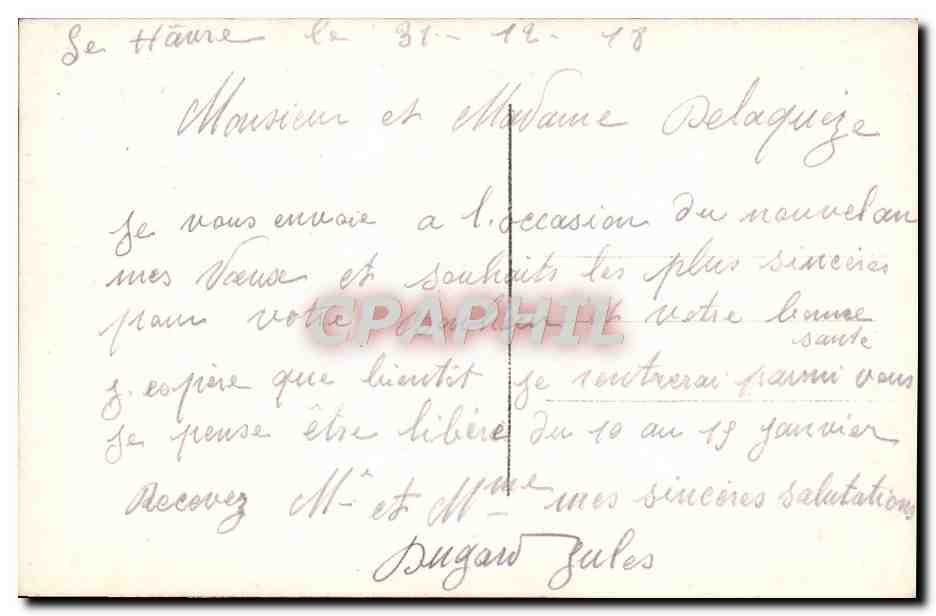 Le Hâvre le 31-12-18
Monsieur et Madame Delaquize
Je vous envoie a l'occasion du nouvel an
mes Vœux et souhaits les plus sincères
pour votre bonheur et votre bonne
santé
J. espère que bientit je rentrerai parmi vous
Je pense être libéré du 10 au 15 janvier
Recevez Mr et Mme mes sincères salutations
Dugard Jules
CPAPHIL